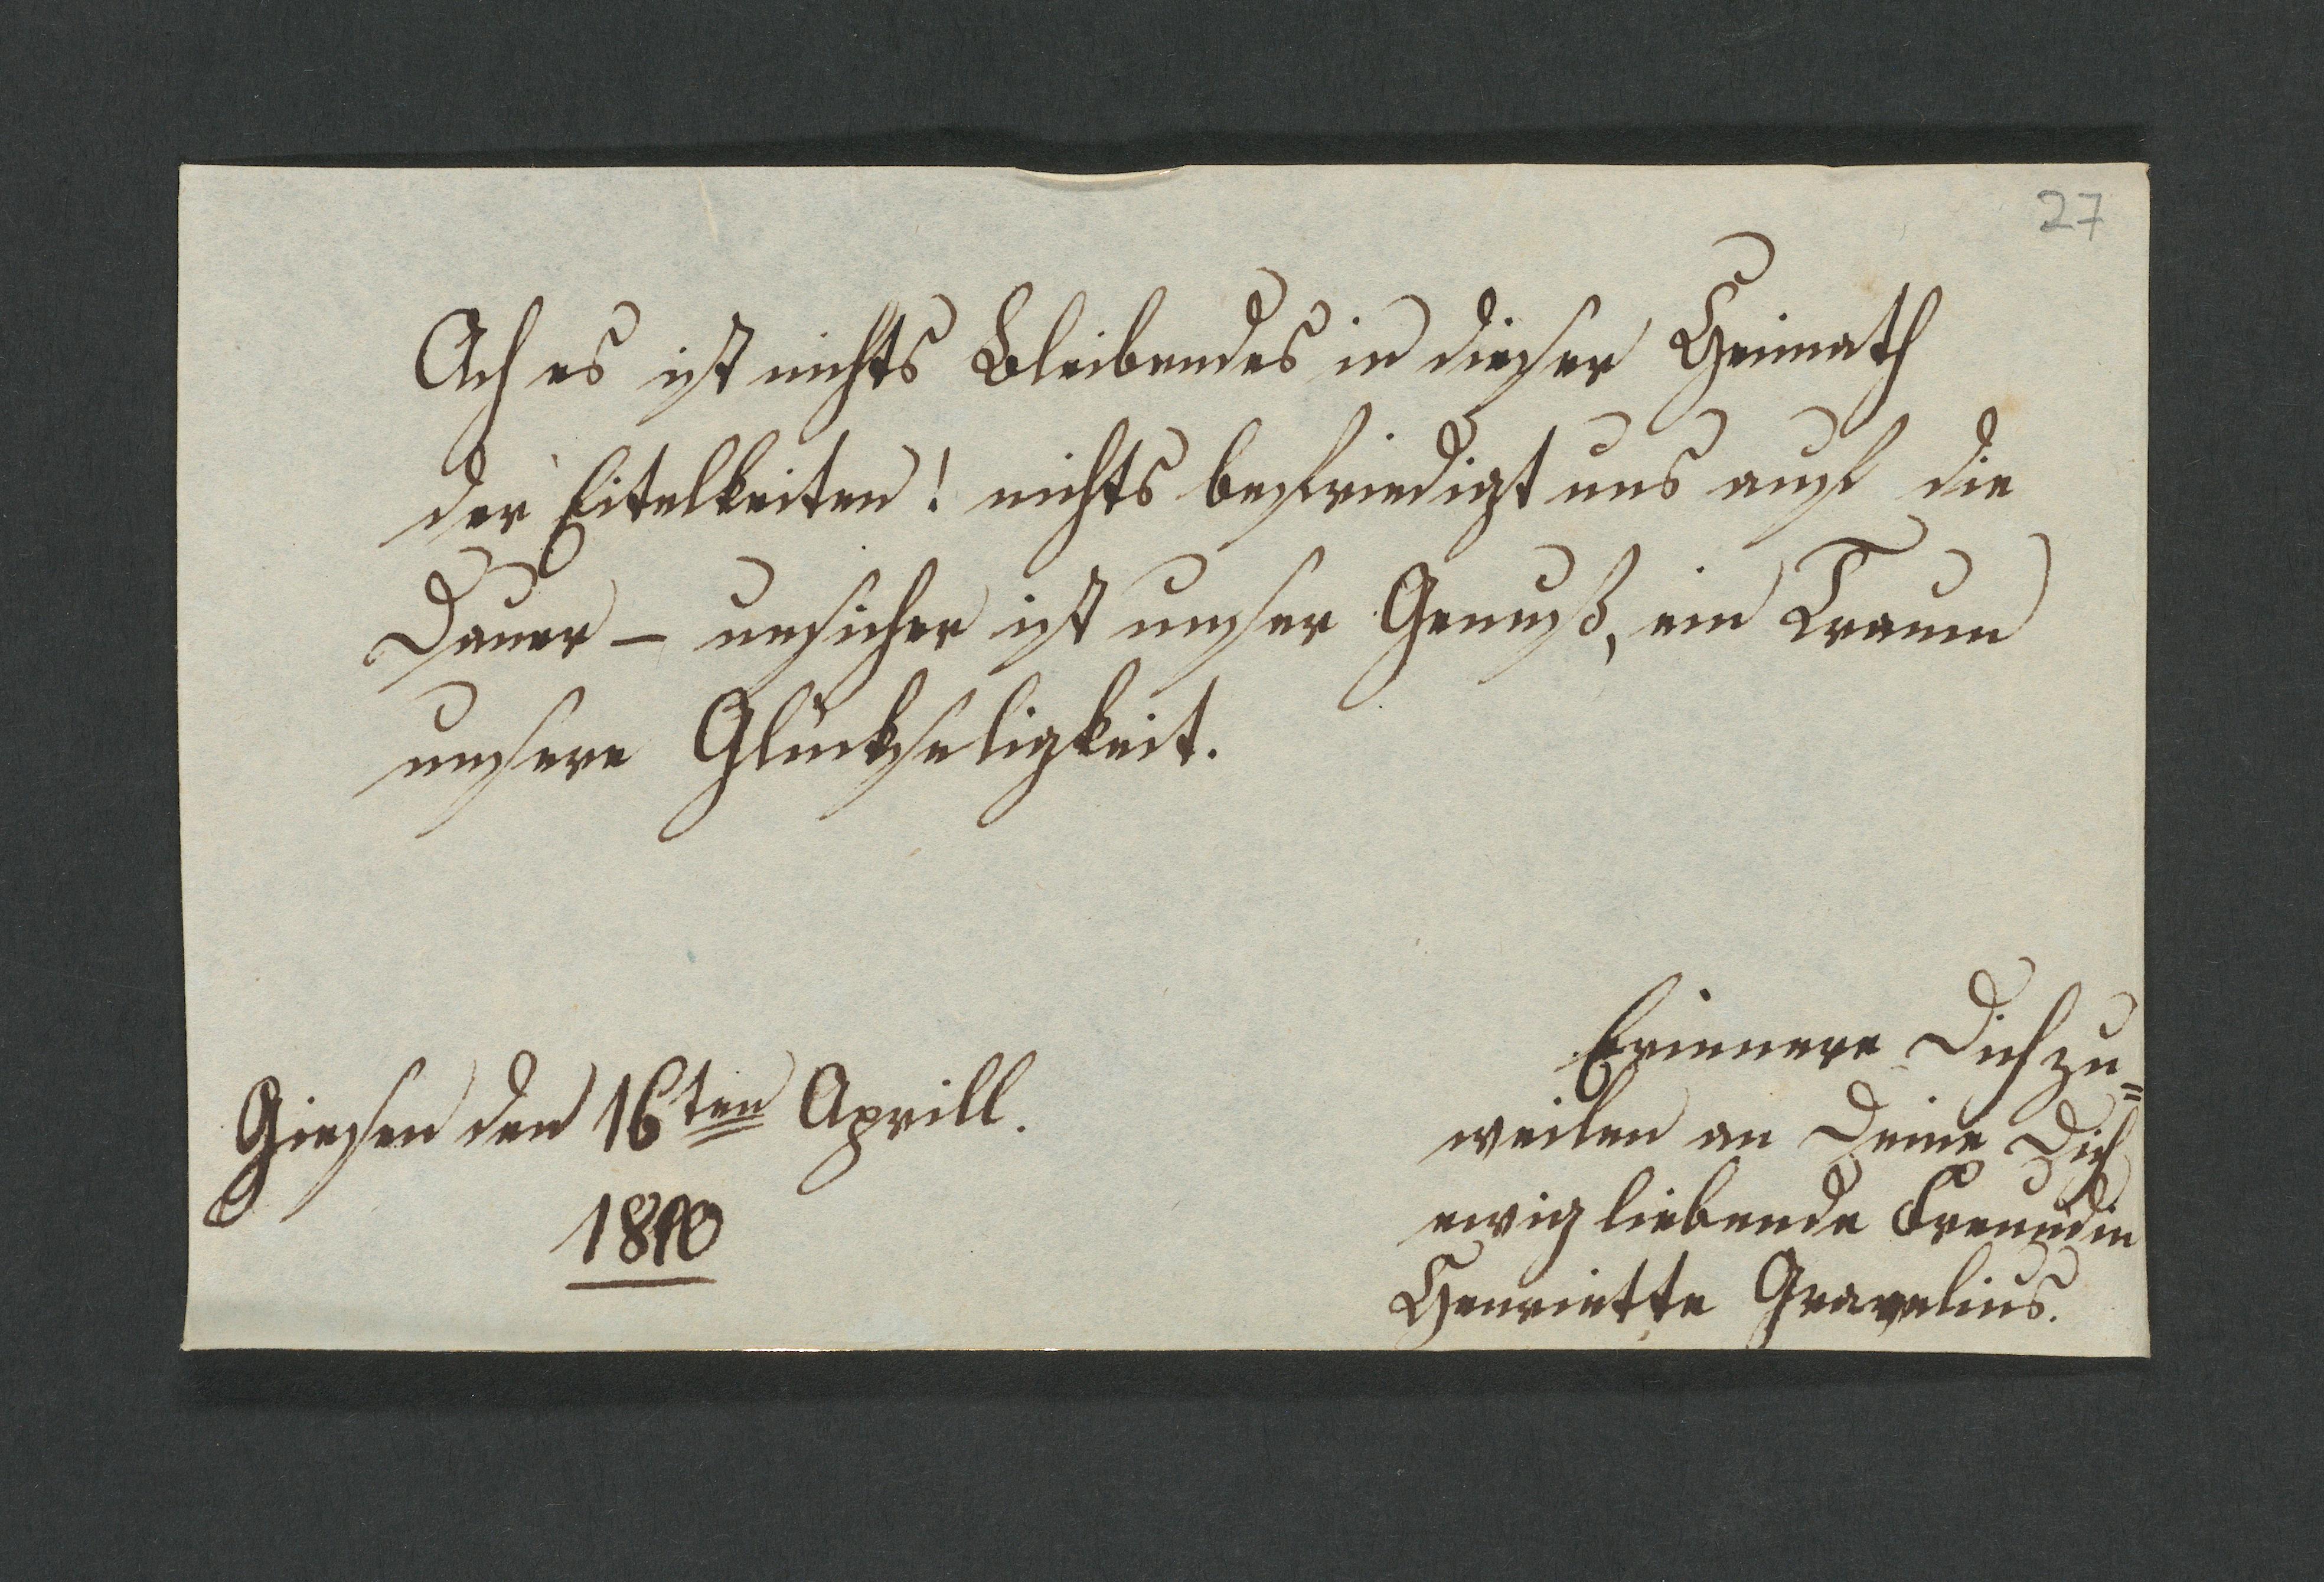 27
Ach es ist nichts Bleibendes in dieser Heimath
der Eitelkeiten! nichts befriedigt uns auf die
Dauer – unsicher ist unser Genuß, ein Traum
unsere Glückseligkeit.
Erinnere Dich zu=
weilen an Deine Dich
ewig liebende Freundin
Henriette Gravelius.
Giesen den 16ten Aprill.
1810